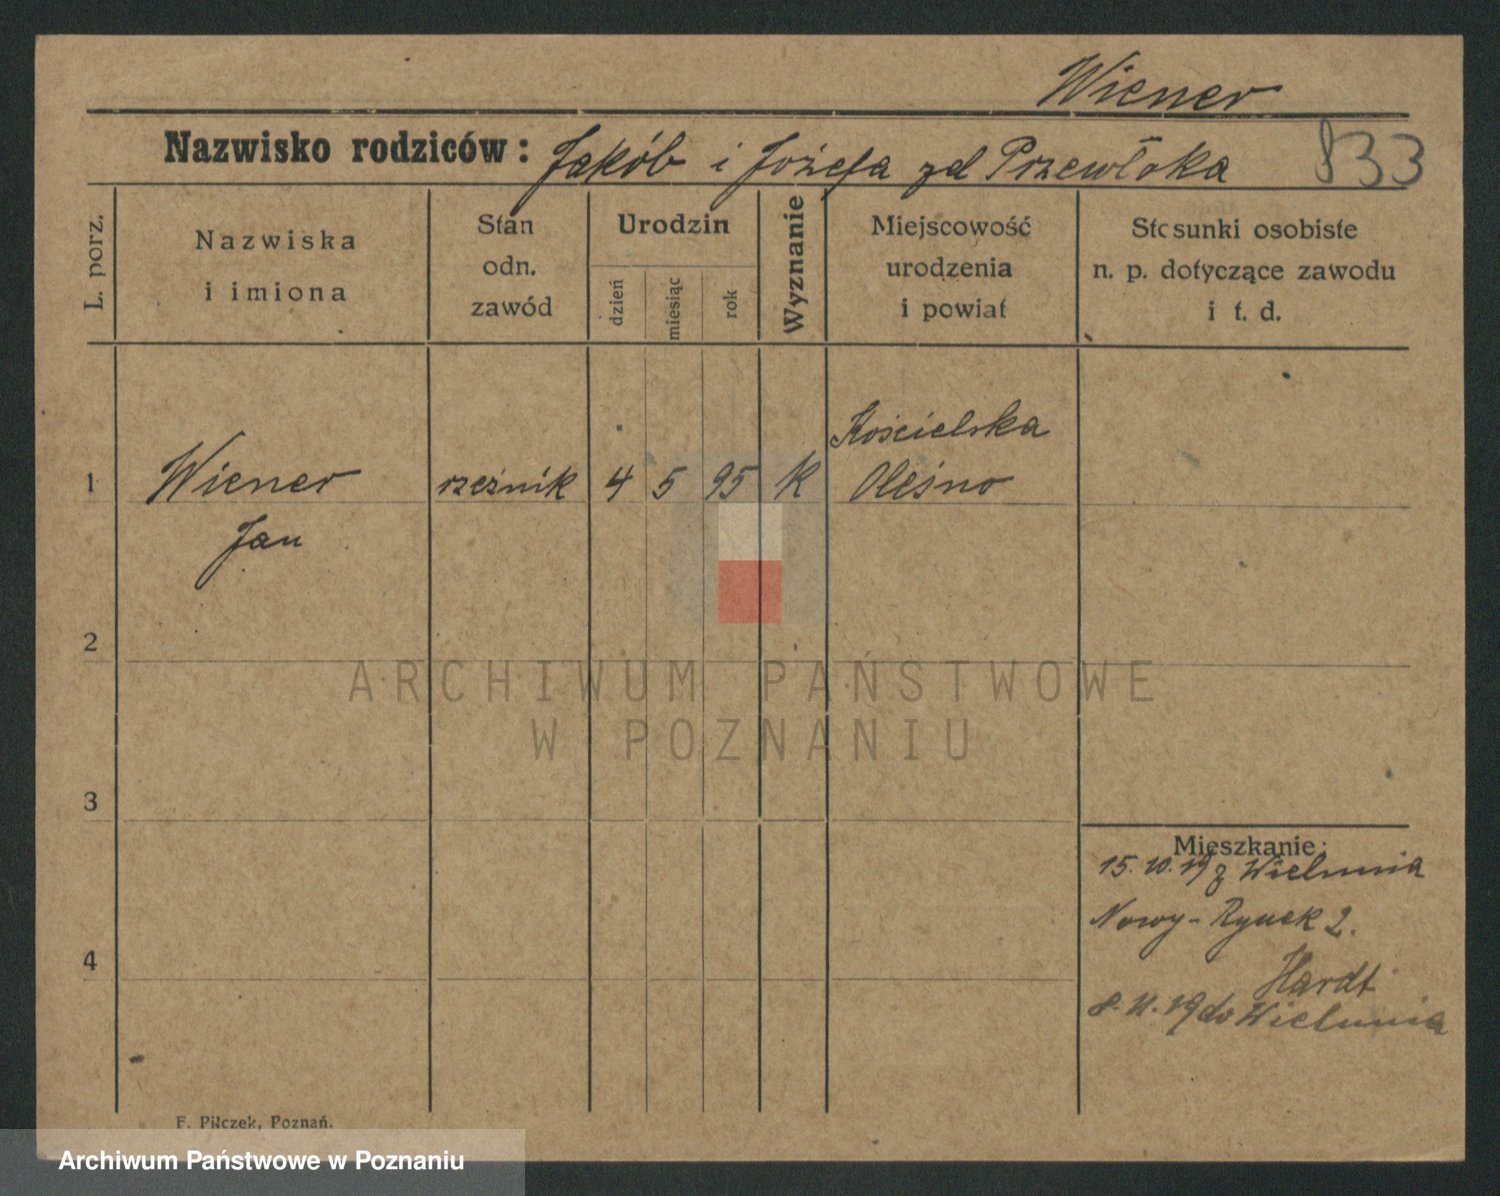 Wiener
Nazwisko rodziców: Jakób i Józefa zd Przewłoka 833
L. porz.
Nazwiska
i imiona
Stan
odn.
zawód
Urodzin
dzień
miesiąc
rok
Wyznanie
Miejscowość
urodzenia
i powiat
Stosunki osobiste
n. p. dotyczące zawodu
i t. d.
Kościelska
1 Wiener rzeźnik 4 5 95 K Oleśno
Jan
2
ARCHIWUM PAŃSTWOWE
W POZNANIU
3
Mieszkanie:
15.10.19 z Wielunia
Nowy-Rynek 2.
4
Hardt
8.11.19 do Wielunia
F. Pilczek, Poznań.
Archiwum Państwowe w Poznaniu